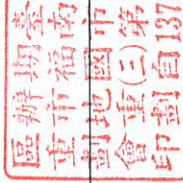 臺南市第187
期福國(三)自
辦市地重劃
區重劃會印